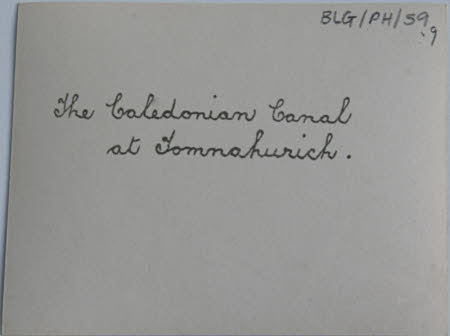 BLG/PH/59
:9
The Caledonian Canal
at Tomnahurich.